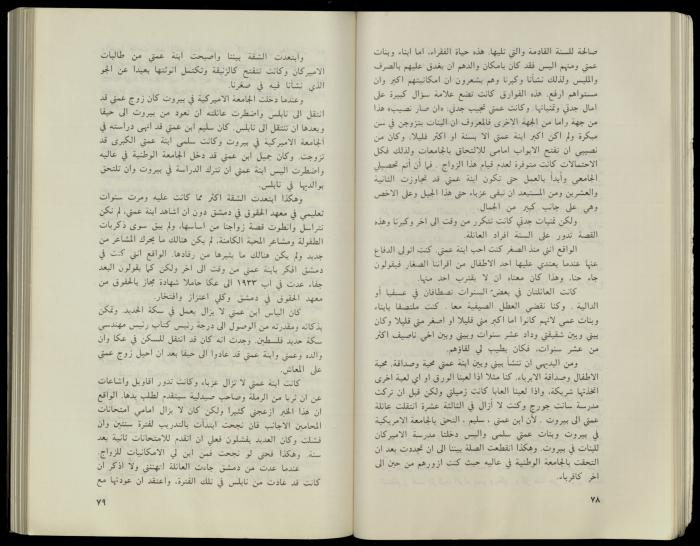 صالحة للسنة القادمة والتي تليها. هذه حياة الفقراء، اما ابناء وبنات
عمتي ومنهم اليس فقد كان بامكان والدهم ان يغدق عليهم بالصرف
والملبس ولذلك نشأنا وكبرنا وهم يشعرون ان امكانيتهم اكبر وان
مستواهم ارفع. هذه الفوارق كانت تضع علامة سؤال كبيرة على
امال جدتي وتمنياتها. وكانت عمتي تجيب جدتي: «ان صار نصيب» هذا
من جهة واما من الجهة الاخرى فالمعروف ان البنات يتزوجن في سن
مبكرة ولم اكن اكبر ابنة عمتي الا بسنة او اكثر قليلا، وكان من
نصيبي ان تفتح الابواب امامي للالتحاق بالجامعات ولذلك فكل
الاحتمالات كانت متوفرة لعدم قيام هذا الزواج. فما أن أتم تحصيلي
الجامعي وأبدأ بالعمل حتى تكون ابنة عمتي قد تجاوزت الثانية
والعشرين ومن المستبعد ان تبقى عزباء حتى هذا الجيل وعلى الاخص
وهي على جانب كبير من الجمال.
ولكن تمنيات جدتي كانت تتكرر من وقت الى اخر وكبرنا وهذه
القصة تدور على السنة افراد العائلة.
الواقع انني منذ الصغر كنت احب ابنة عمتي. كنت اتولى الدفاع
عنها عندما يعتدي عليها احد الاطفال من اقراننا الصغار فيقولون
جاء حنا، وهذا كان معناه ان لا يقترب احد منها.
كانت العائلتان في بعض السنوات تصطافان في عسفيا أو
الدالية. وكنا نقضي العطل الصيفية معا. كنت ملتصقا بابناء
وبنات عمتي لانهم كانوا اما اكبر مني قليلا او اصغر مني قليلا وكان
بيني وبين شقيقتي وداد عشر سنوات وبيني وبين اخي ناصيف اكثر
من عشر سنوات، فكان يطيب لي لقاؤهم.
ومن البديهي ان تنشأ بيني وبين ابنة عمتي محبة وصداقة. محبة
الاطفال وصداقة الابرياء. كنا مثلا اذا لعبنا الورق او اي لعبة اخرى
اتخذتها شريكة، واذا لعبنا العابا كانت زميلتي ولكن قبل ان تركت
مدرسة سانت جورج وكنت لا أزال في الثالثة عشرة انتقلت عائلة
عمتي الى بيروت. لأن ابن عمتي، سليم، التحق بالجامعة الامريكية
في بيروت وبنات عمتي سلمى واليس دخلتا مدرسة الاميركان
للبنات في بيروت. وهكذا انقطعت الصلة بيننا الى ان تجددت بعد ان
التحقت بالجامعة الوطنية في عاليه حيث كنت ازورهم من حين الى
اخر كأقرباء.
٧٨
وابتعدت الشقة بيننا واصبحت ابنة عمتي من طالبات
الاميركان وكانت تتفتح كالزنبقة وتكتمل انوثتها بعيدا عن الجو
الذي نشأنا فيه في صغرنا.
وعندما دخلت الجامعة الاميركية في بيروت كان زوج عمتي قد
انتقل الى نابلس واضطرت عائلته ان تعود من بيروت الى حيفا
وبعدها ان تنتقل الى نابلس. كان سليم ابن عمتي قد انهى دراسته في
الجامعة الاميركية في بيروت وكانت سلمى ابنة عمتي الكبرى قد
تزوجت. وكان جميل ابن عمتي قد دخل الجامعة الوطنية في عاليه
واضطرت اليس ابنة عمتي ان تترك الدراسة في بيروت وان تلتحق
بوالديها في نابلس.
وهكذا ابتعدت الشقة اكثر مما كانت عليه ومرت سنوات
تعليمي في معهد الحقوق في دمشق دون ان اشاهد ابنة عمتي، لم نكن
نتراسل وانطوت قصة زواجنا من اساسها، ولم يبق سوى ذكريات
الطفولة ومشاعر المحبة الكامنة، لم يكن هنالك ما يحرك المشاعر من
جديد ولم يكن هنالك ما يثيرها من رقادها. الواقع انني كنت في
دمشق افكر بابنة عمتي من وقت الى اخر ولكن كما يقولون البعد
جفاء عدت في اب ١٩٣٣ الى عكا حاملا شهادة مجاز بالحقوق من
معهد الحقوق في دمشق وكلي اعتزاز وافتخار.
كان الياس ابن عمتي لا يزال يعمل في سكة الحديد وتمكن
بذكائه ومقدرته من الوصول الى درجة رئيس كتاب رئيس مهندسي
سكة حديد فلسطين. وجدت انه كان قد انتقل للسكن في عكا وان
والده وعمتي وابنة عمتي قد عادوا الى حيفا بعد ان احيل زوج عمتي
على المعاش.
كانت ابنة عمتي لا تزال عزباء وكانت تدور اقاويل واشاعات
عن ان ثريا من الرملة وصاحب صيدلية سيتقدم لطلب يدها. الواقع
ان هذا الخبر ازعجني كثيرا ولكن كان لا يزال امامي امتحانات
المحامين الاجانب فان نجحت ابتدأت بالتدريب لفترة سنتين وان
فشلت وكان العديد يفشلون فعلي ان اتقدم للامتحانات ثانية بعد
سنة. وهكذا فحتى لو نجحت فمن اين لي الامكانيات للزواج.
عندما عدت من دمشق جاءت العائلة لتهنئتي ولا اذكر ان
كانت قد عادت من نابلس في تلك الفترة، واعتقد ان عودتها مع
٧٩